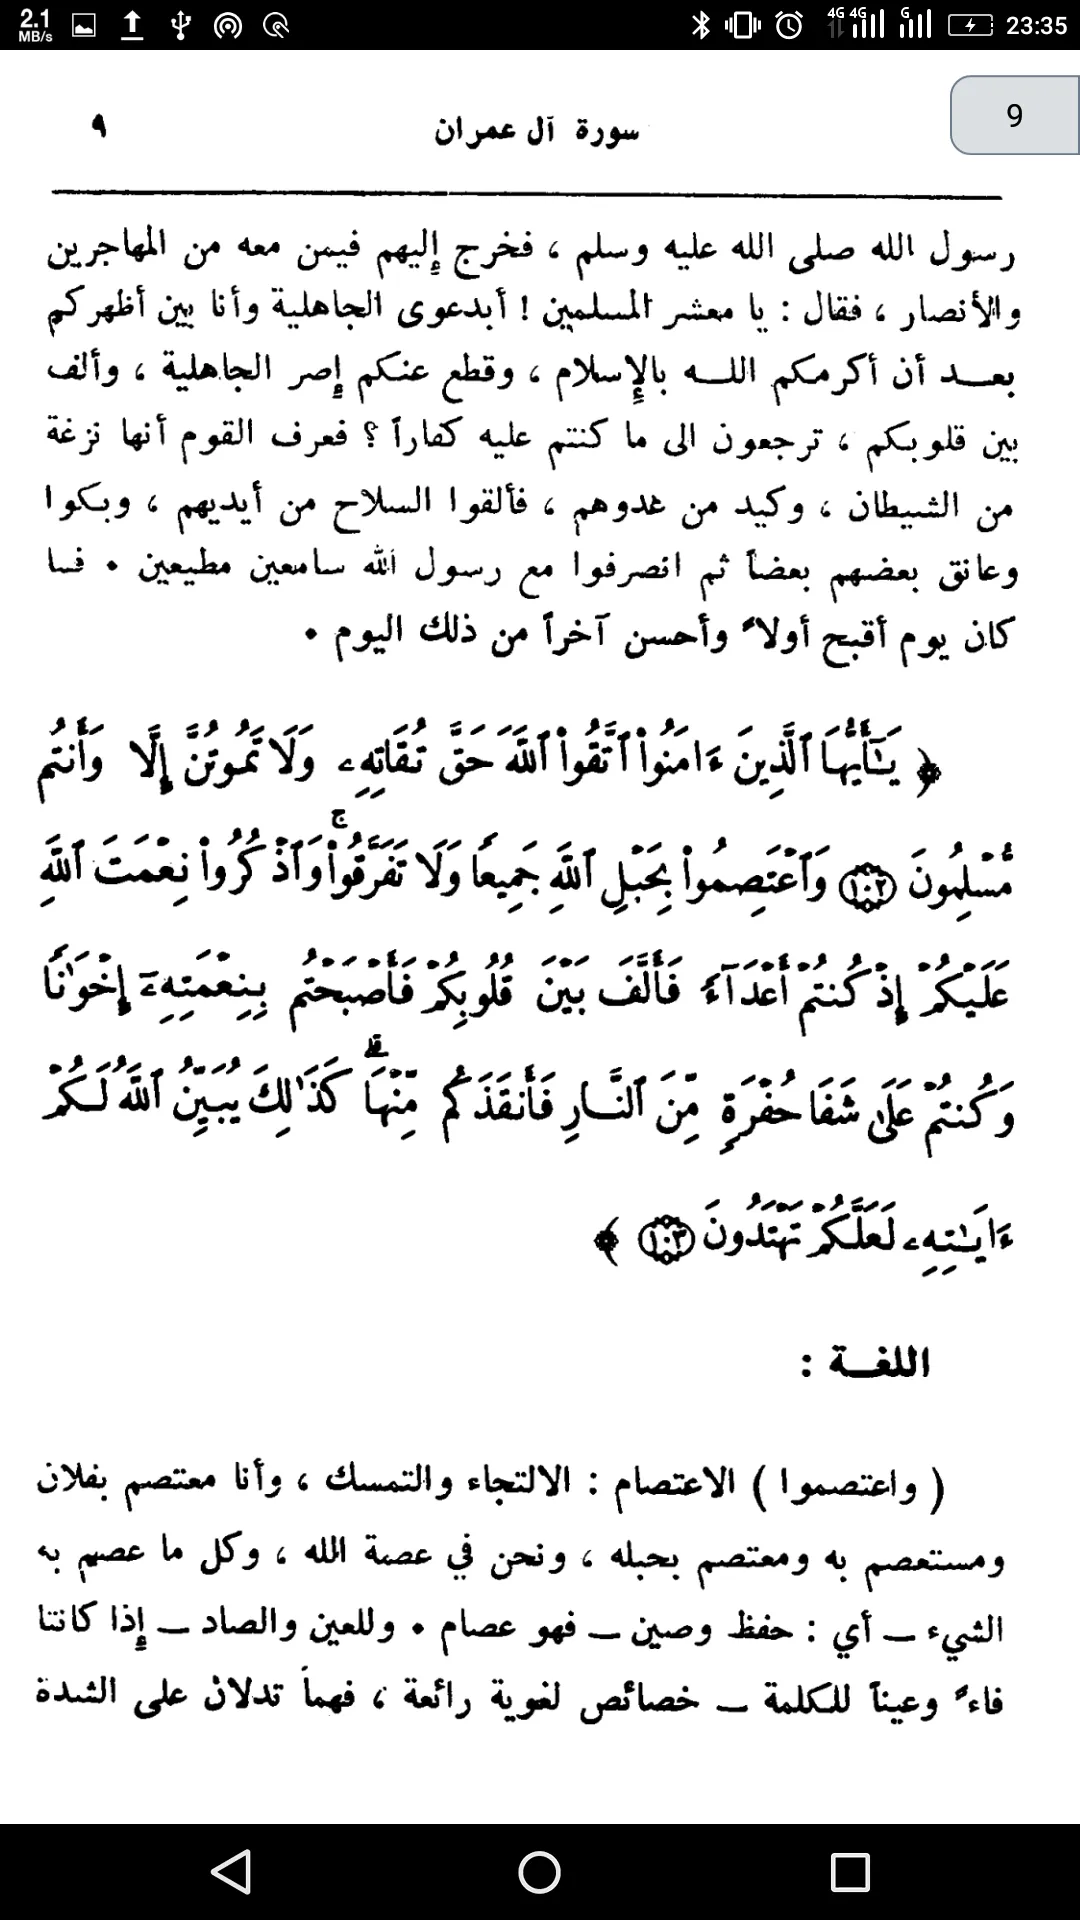 2.1
MB/s
4G 4G G 23:35
9
سورة آل عمران ٩
رسول الله صلى الله عليه وسلم ، فخرج إليهم فيمن معه من المهاجرين
والأنصار ، فقال : يا معشر المسلمين ! أبدعوى الجاهلية وأنا بين أظهركم
بعــد أن أكرمكم اللــه بالإسلام ، وقطع عنكم إصر الجاهلية ، وألف
بين قلوبكم ، ترجعون الى ما كنتم عليه كفاراً ؟ فعرف القوم أنها نزغة
من الشيطان ، وكيد من عدوهم ، فألقوا السلاح من أيديهم ، وبكوا
وعانق بعضهم بعضاً ثم انصرفوا مع رسول الله سامعين مطيعين ٠ فما
كان يوم أقبح أولاً وأحسن آخراً من ذلك اليوم ٠
﴿ يَـٰٓأَيُّهَا ٱلَّذِينَ ءَامَنُوا۟ ٱتَّقُوا۟ ٱللَّهَ حَقَّ تُقَاتِهِۦ وَلَا تَمُوتُنَّ إِلَّا وَأَنتُم
مُّسْلِمُونَ ١٠٢ وَٱعْتَصِمُوا۟ بِحَبْلِ ٱللَّهِ جَمِيعًا وَلَا تَفَرَّقُوا۟ۚ وَٱذْكُرُوا۟ نِعْمَتَ ٱللَّهِ
عَلَيْكُمْ إِذْ كُنتُمْ أَعْدَآءً فَأَلَّفَ بَيْنَ قُلُوبِكُمْ فَأَصْبَحْتُم بِنِعْمَتِهِۦٓ إِخْوَٰنًا
وَكُنتُمْ عَلَىٰ شَفَا حُفْرَةٍ مِّنَ ٱلنَّارِ فَأَنقَذَكُم مِّنْهَاۗ كَذَٰلِكَ يُبَيِّنُ ٱللَّهُ لَكُمْ
ءَايَـٰتِهِۦ لَعَلَّكُمْ تَهْتَدُونَ ١٠٣ ﴾
اللغــة :
( واعتصموا ) الاعتصام : الالتجاء والتمسك ، وأنا معتصم بفلان
ومستعصم به ومعتصم بحبله ، ونحن في عصمة الله ، وكل ما عصم به
الشيء ــ أي : حفظ وصين ــ فهو عصام ٠ وللعين والصاد ــ إذا كانتا
فاءً وعيناً للكلمة ــ خصائص لغوية رائعة ، فهما تدلان على الشدة